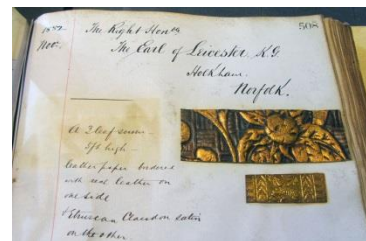 The Right Honble
508
Nov.
The Earl of Leicester K.G.
Holkham.
Norfolk.
A 3 leaf screen
5ft high
leather paper bordered
with real leather on
one side
Etruscan Clarendon satin
on the other